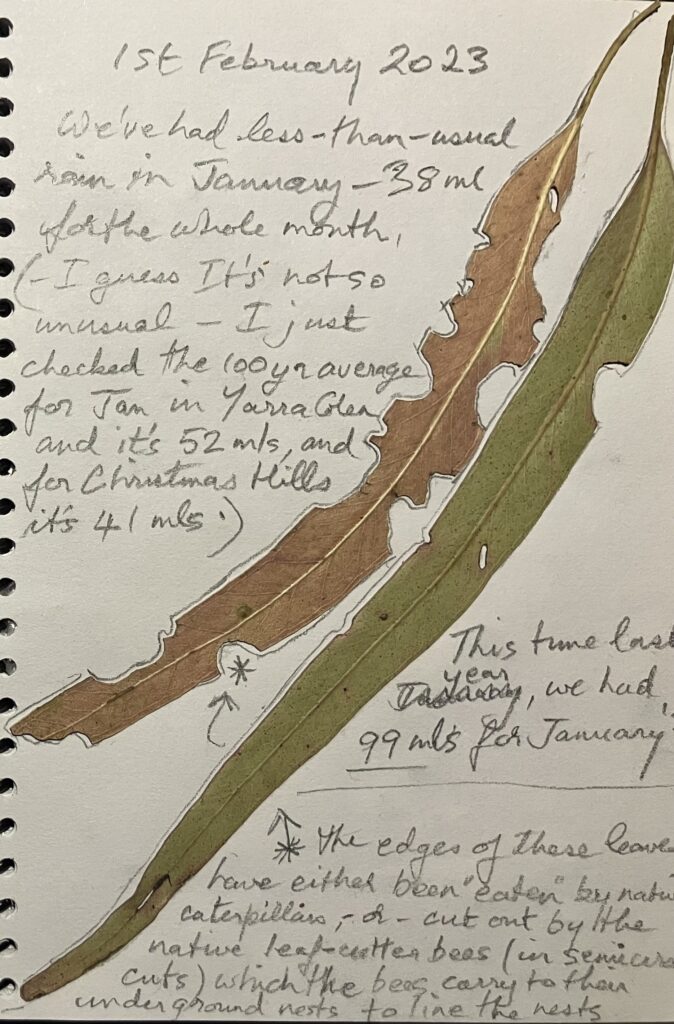 1st February 2023
We've had less-than-usual
rain in January – 38 ml
for the whole month,
(– I guess It's not so
unusual – I just
checked the 100yr average
for Jan in Yarra Glen
and it's 52 mls, and
for Christmas Hills
it's 41 mls.)
*
This time last
year
, we had
99 mls for January
* The edges of these leaves
have either been "eaten" by nativ
caterpillars, – or – cut out by the
native leaf-cutter bees (in semicirc
cuts) which the bees carry to their
underground nests to line the nests